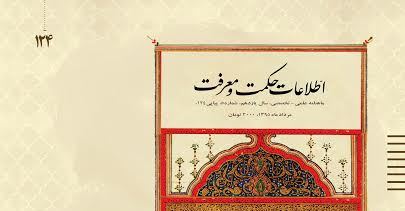 ۱۲۴
اطلاعات حکمت و معرفت
ماهنامه علمی - تخصصی، سال یازدهم، شماره ۵، پیاپی ۱۲۴،
مرداد ماه ۱۳۹۵، ۳۰۰۰ تومان